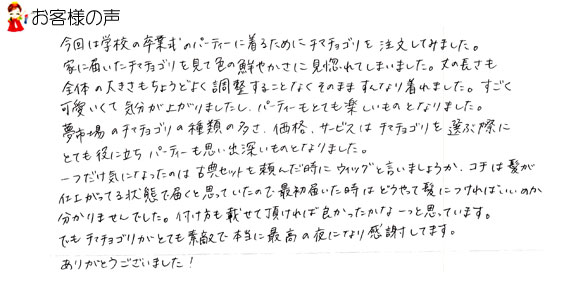 お客様の声
今回は学校の卒業式のパーティーに着るためにチマチョゴリを注文してみました。
家に届いたチマチョゴリを見て色の鮮やかさに見惚れてしまいました。丈の長さも
全体の大きさもちょうどよく調整することなくそのまますんなり着れました。すごく
可愛いくて気分が上がりましたし、パーティーもとても楽しいものとなりました。
夢市場のチマチョゴリの種類の多さ、価格、サービスはチマチョゴリを選ぶ際に
とても役に立ちパーティーも思い出深いものとなりました。
一つだけ気になったのは古典セットを頼んだ時にウィッグと言いましょうか、コチは髪が
仕上がってる状態で届くと思っていたので最初届いた時はどうやって髪につければいいのか
分かりませんでした。付け方も載せて頂ければ良かったかなーっと思っています。
でもチマチョゴリがとても素敵で本当に最高の夜になり感謝してます。
ありがとうございました!